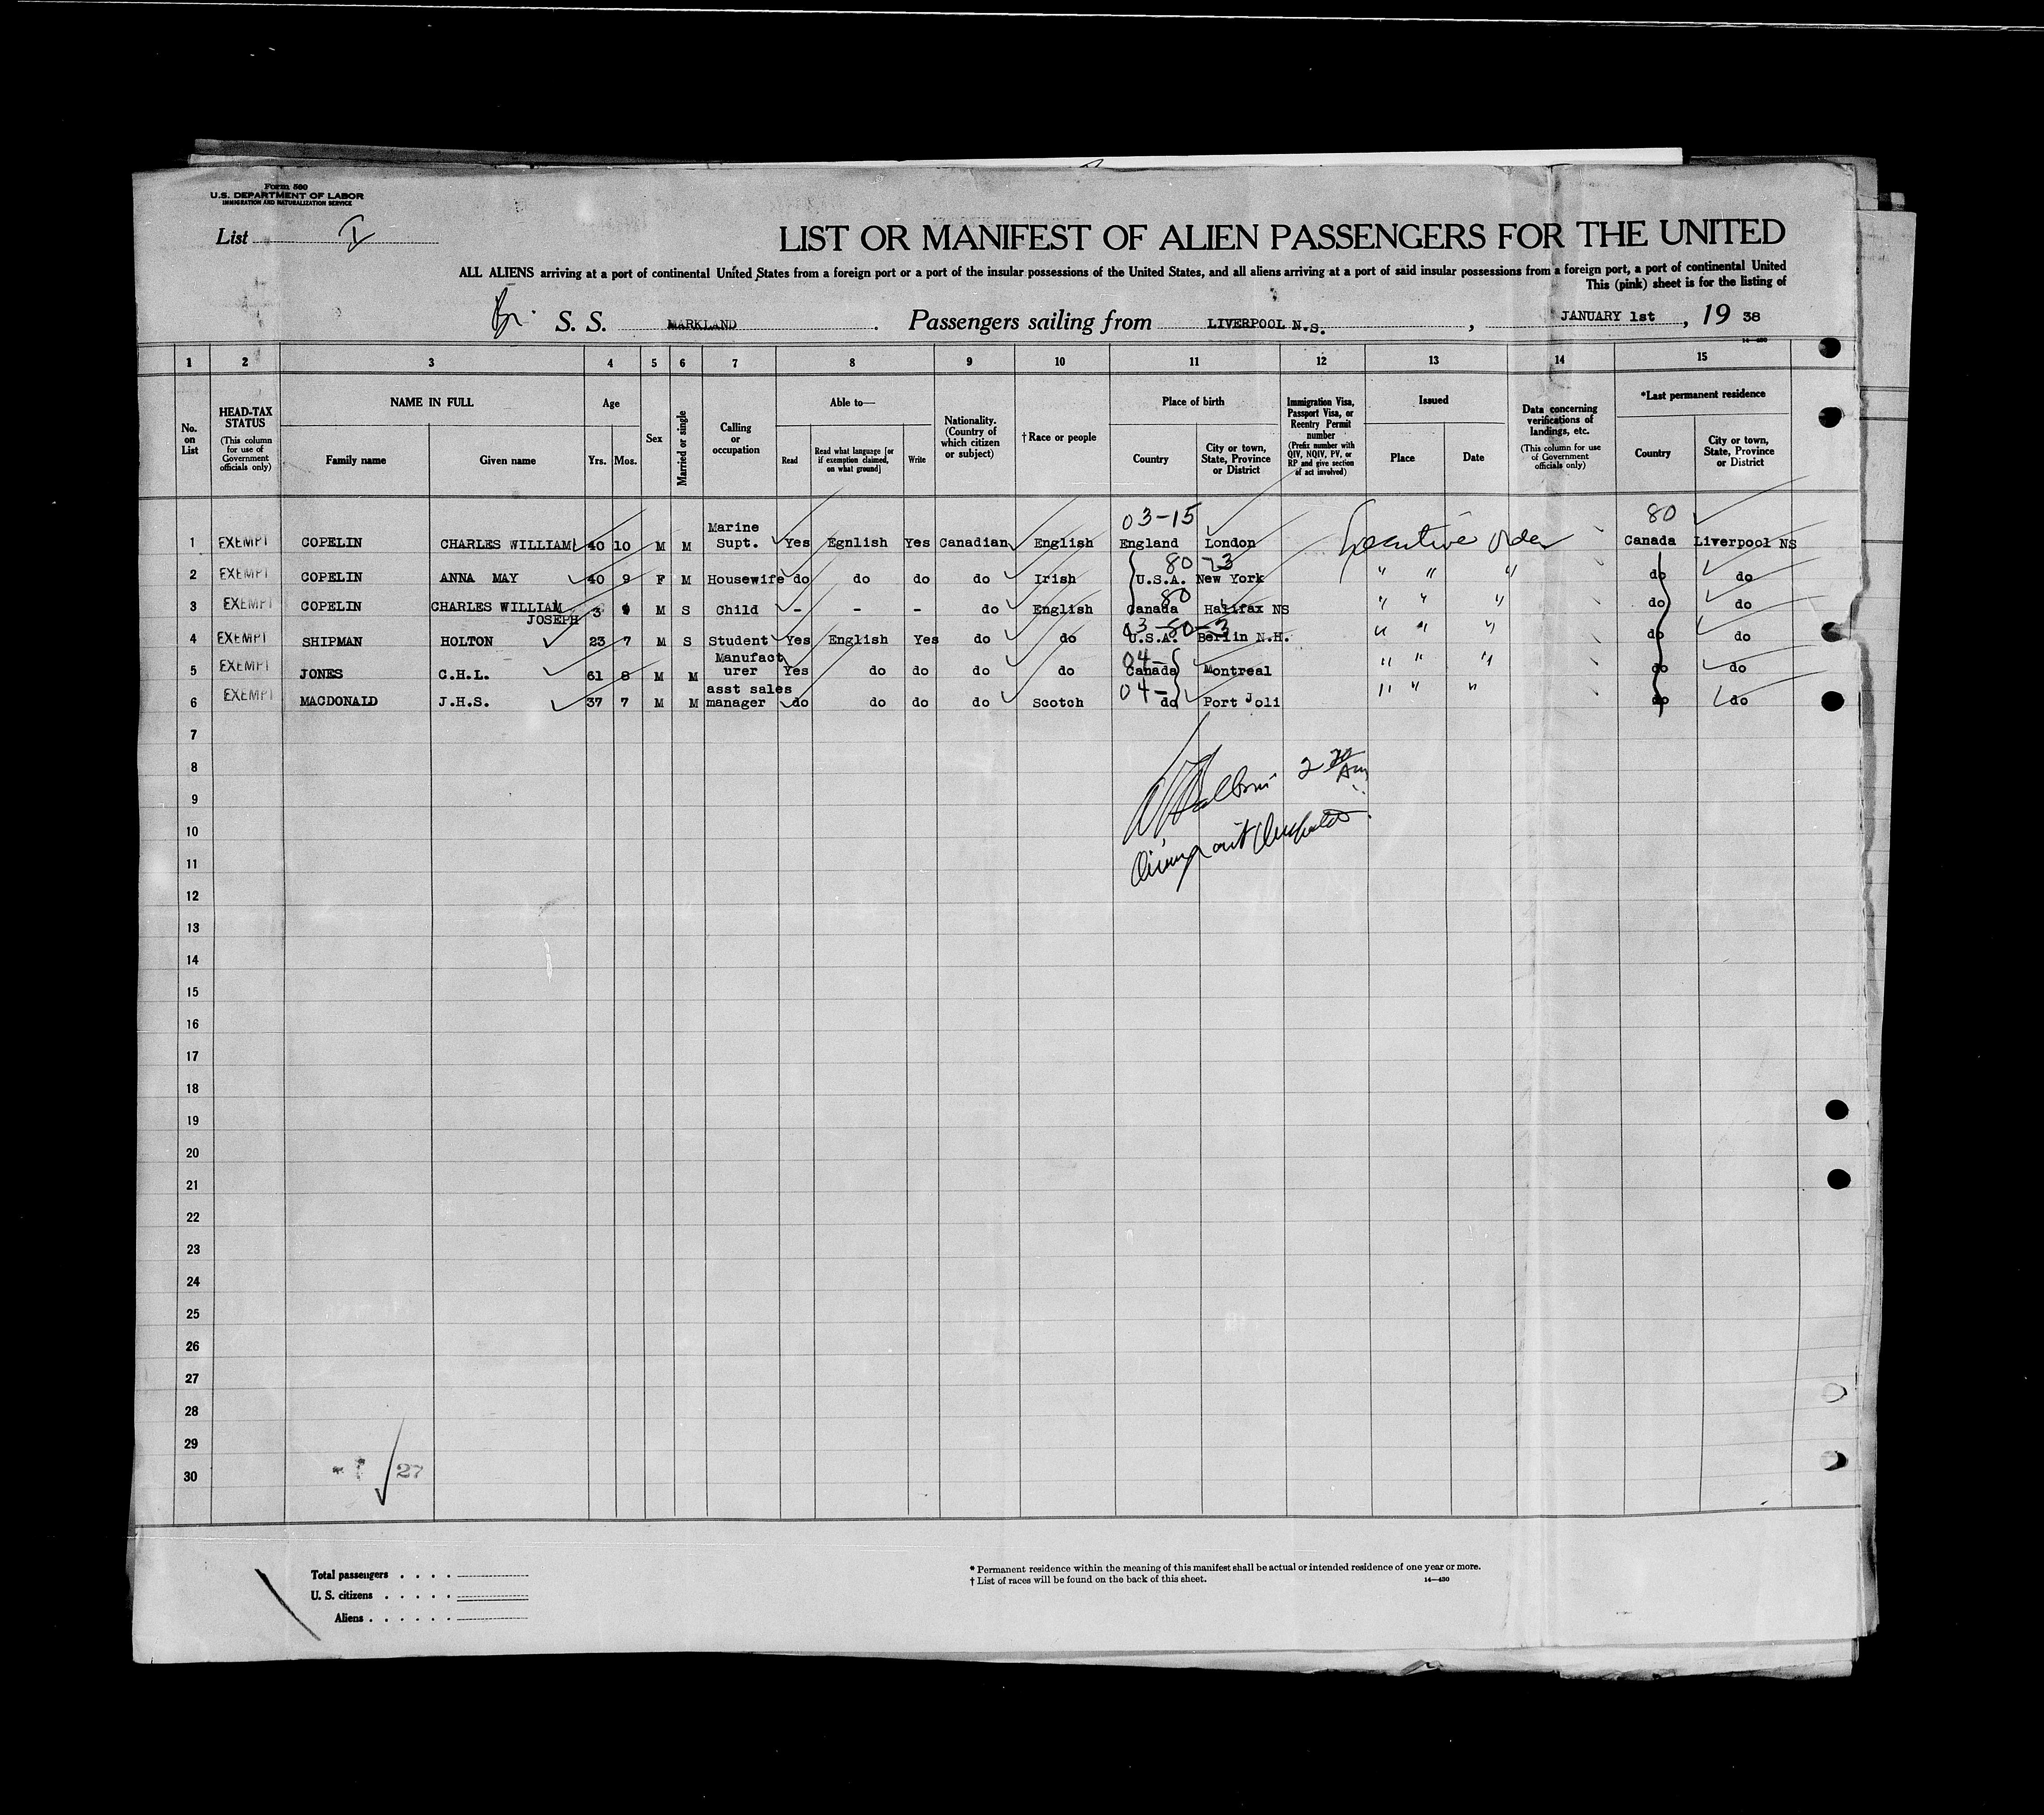 Form 500
U.S. DEPARTMENT OF LABOR
IMMIGRATION AND NATURALIZATION SERVICE
List I
LIST OR MANIFEST OF ALIEN PASSENGERS FOR THE UNITED
ALL ALIENS arriving at a port of continental United States from a foreign port or a port of the insular possessions of the United States, and all aliens arriving at a port of said insular possessions from a foreign port, a port of continental United
This (pink) sheet is for the listing of
Br. S. S. MARKLAND. Passengers sailing from LIVERPOOL N.S., JANUARY 1st, 19 38
1 2 3 4 5 6 7 8 9 10 11 12 13 14 15
No. on List
HEAD-TAX STATUS (This column for use of Government officials only)
NAME IN FULL
Family name
Given name
Age
Yrs. Mos.
Sex
Married or single
Calling or occupation
Able to—
Read
Read what language [or if exemption claimed, on what ground]
Write
Nationality. (Country of which citizen or subject)
†Race or people
Place of birth
Country
City or town, State, Province or District
Immigration Visa, Passport Visa, or Reentry Permit number (Prefix number with QIV, NQIV, PV, or RP and give section of act involved)
Issued
Place
Date
Data concerning verifications of landings, etc. (This column for use of Government officials only)
*Last permanent residence
Country
City or town, State, Province or District
03-15 80
1 EXEMPT COPELIN CHARLES WILLIAM 40 10 M M Marine Supt. Yes Egnlish Yes Canadian English England London Executive Order Canada Liverpool NS
80 -3
2 EXEMPT COPELIN ANNA MAY 40 9 F M Housewife do do do do Irish U.S.A. New York " " " do do
80
3 EXEMPT COPELIN CHARLES WILLIAM JOSEPH 3 M S Child - - - do English Canada Halifax NS " " " do do
03-80-3
4 EXEMPT SHIPMAN HOLTON 23 7 M S Student Yes English Yes do do U.S.A. Berlin N.H. " " " do do
04-
5 EXEMPT JONES C.H.L. 61 8 M M Manufacturer Yes do do do do Canada Montreal " " " do do
04-
6 EXEMPT MACDONALD J.H.S. 37 7 M M asst sales manager do do do do Scotch do Port Joli " " " do do
7
8
2 30 Am
9
10
11
12
13
14
15
16
17
18
19
20
21
22
23
24
25
26
27
28
29
30
27
Total passengers . . . .
U. S. citizens . . . . .
Aliens . . . . . .
* Permanent residence within the meaning of this manifest shall be actual or intended residence of one year or more.
† List of races will be found on the back of this sheet.
14—430